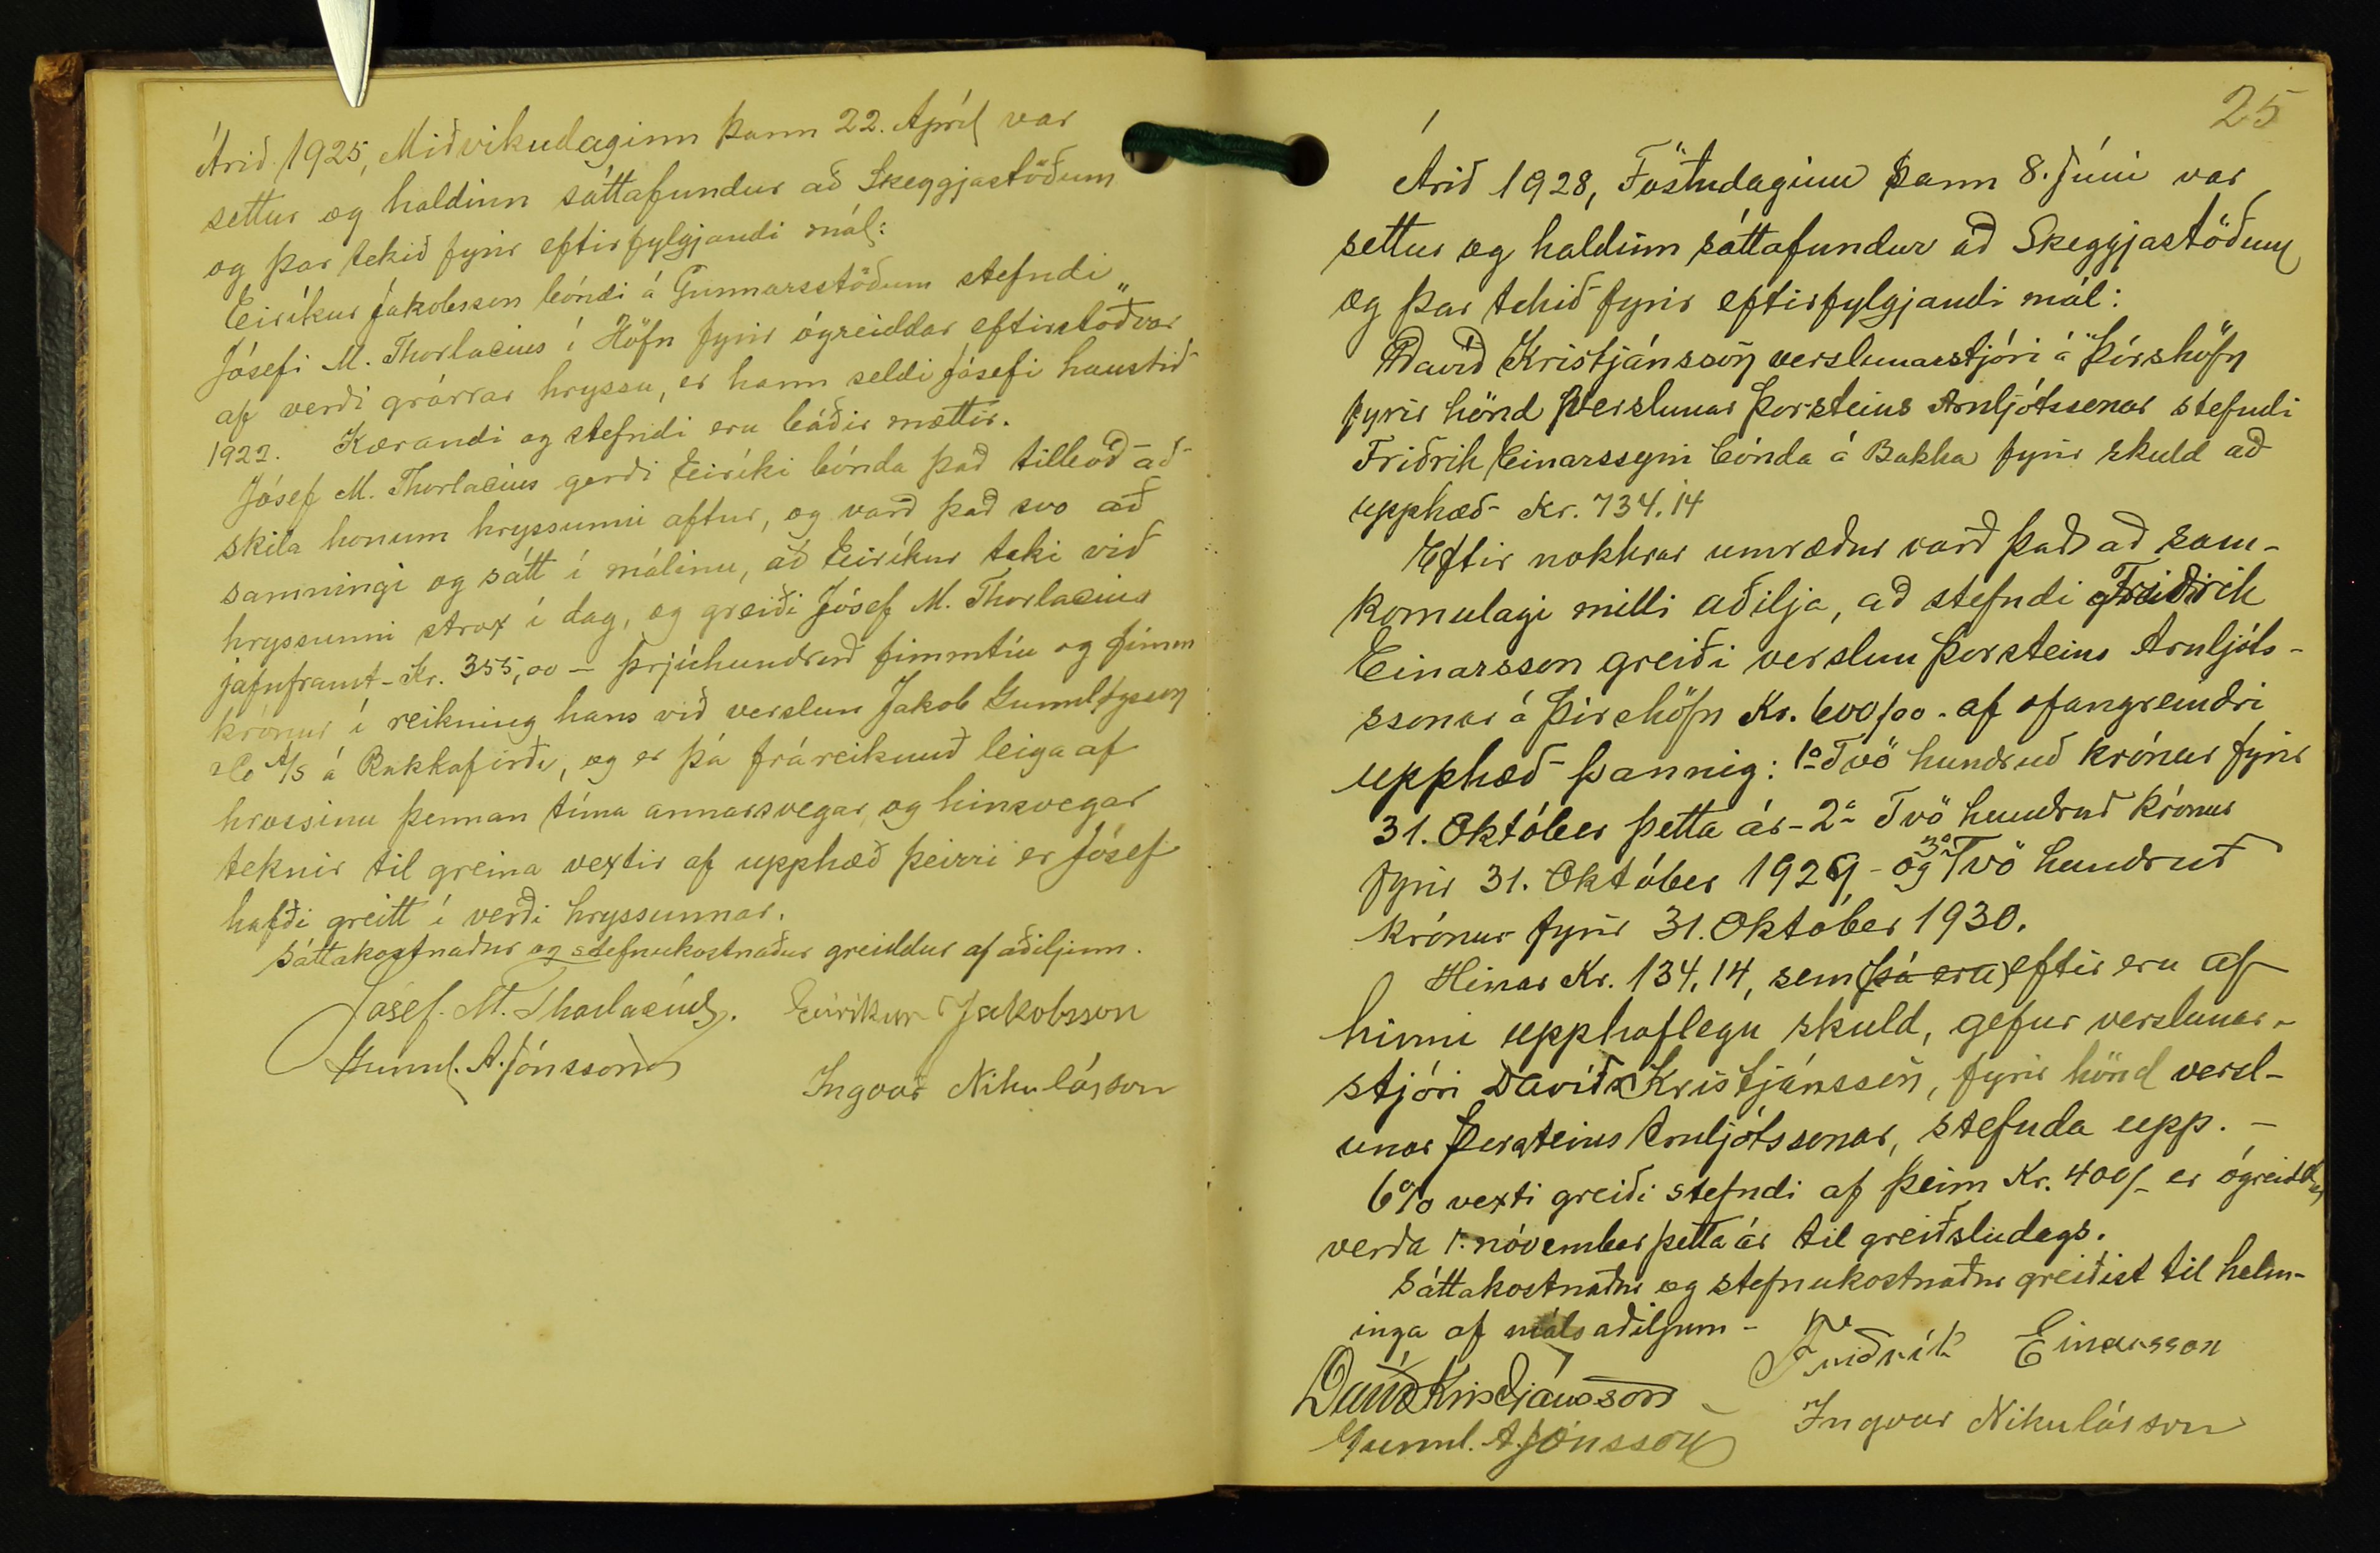 Árið 1925, Miðvikudaginn þann 22. Apríl var
settur og haldinn sáttafundur að Skeggjastöðum
og þar tekið fyrir eftirfylgjandi mál:
Eiríkur Jakobsson bóndi á Gunnarsstöðum stefndi
Jósefi M. Thorlacius í Höfn fyrir ógreiddar eftirstöðvar
af verði grárrar hryssu, er hann seldi Jósefi haustið
1922. Kærandi og stefndi eru báðir mættir.
Jósef M. Thorlacius gerði Eiríki bónda það tilboð að
skila honum hryssunni aftur, og varð það svo að
samningi og sátt í málinu, að Eiríkur taki við
hryssunni strax í dag, og greiði Jósef M. Thorlacius
jafnframt - Kr. 355,00 - þrjúhundruð fimmtíu og fimm
krónur í reikning hans við verslun Jakob Gunnlögsson
& Co A/S á Bakkafirði, og er þá fráreiknuð leiga af
hrossinu þennan tíma annarsvegar, og hinsvegar
teknir til greina vextir af upphæð þeirri er Jósef
hafði greitt í verði hryssunnar.
Sáttakostnaður og stefnukostnaður greiddur af aðiljum.
Jósef. M. Thorlacius. Eiríkur Jakobsson
Gunnl. A. Jónsson
Ingvar Nikulásson
25
Árið 1928, Föstudaginn þann 8. Júní var
settur og haldinn sáttafundur að Skeggjastöðum
og þar tekið fyrir eftirfylgjandi mál:
Davíð Kristjánsson verslunarstjóri á Þórshöfn
fyrir hönd verslunar Þorsteins Arnljótssonar stefndi
Friðrik Einarssyni bónda á Bakka fyrir skuld að
upphæð - Kr. 734.14
Eftir nokkrar umræður varð það að sam-
komulagi milli aðilja, að stefndi Friðrik
Einarsson greiði verslun Þorsteins Arnljóts-
ssonar á Þórshöfn Kr. 600/00 - af ofangreindri
upphæð þannig: 1o Tvö hundruð krónur fyrir
31. Október þetta ár - 2o Tvö hundruð krónur
fyrir 31. Október 1929 - og 3o Tvö hundruð
krónur fyrir 31. Október 1930.
Hinar Kr. 134.14, sem (þá eru) eftir eru af
hinni upphaflegu skuld, gefur verslunar-
stjóri Davíð Kristjánsson, fyrir hönd versl-
unar Þorsteins Arnljótssonar, stefnda upp. -
6% vexti greiði stefndi af þeim Kr. 400/- er ógreiddar
verða 1. nóvember þetta ár til greiðsludags.
Sáttakostnaður og stefnukostnaður greiðist til helm-
inga af málsaðiljum -
Friðrik Einarsson
Davíð Kristjánsson
Ingvar Nikulásson
Gunnl. A. Jónsson